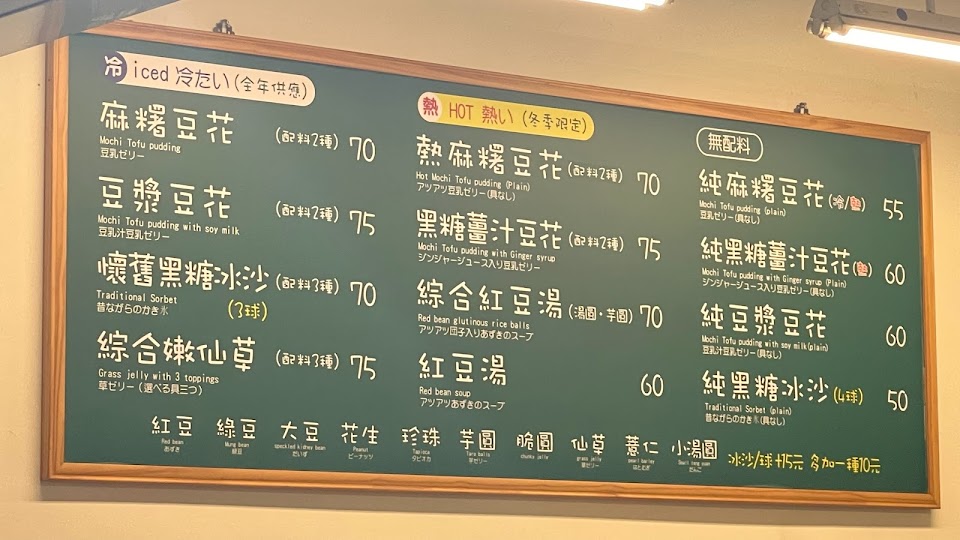 冷 iced 冷たい(全年供應)
麻糬豆花 (配料2種) 70
Mochi Tofu pudding
豆乳ゼリー
豆漿豆花 (配料2種) 75
Mochi Tofu pudding with soy milk
豆乳汁豆乳ゼリー
懷舊黑糖冰沙 (配料3種) 70
Traditional Sorbet
昔ながらのかき氷
(3球)
綜合嫩仙草 (配料3種) 75
Grass jelly with 3 toppings
草ゼリー (選べる具三つ)
熱 HOT 熱い (冬季限定)
熱麻糬豆花 (配料2種) 70
Hot Mochi Tofu pudding (Plain)
アツアツ豆乳ゼリー(具なし)
黑糖薑汁豆花 (配料2種) 75
Mochi Tofu pudding with Ginger syrup
ジンジャージュース入り豆乳ゼリー
綜合紅豆湯 (湯圓・芋圓) 70
Red bean glutinous rice balls
アツアツ団子入りあずきのスープ
紅豆湯 60
Red bean soup
アツアツあずきのスープ
無配料
純麻糬豆花(冷/熱) 55
Mochi Tofu pudding (plain)
豆乳ゼリー(具なし)
純黑糖薑汁豆花(熱) 60
Mochi Tofu pudding with Ginger syrup (Plain)
ジンジャージュース入り豆乳ゼリー(具なし)
純豆漿豆花 60
Mochi Tofu pudding with soy milk(plain)
豆乳汁豆乳ゼリー(具なし)
純黑糖冰沙 (4球) 50
Traditional Sorbet (plain)
昔ながらのかき氷(具なし)
紅豆 綠豆 大豆 花生 珍珠 芋圓 脆圓 仙草 薏仁 小湯圓
Red bean Mung bean speckled kidney bean Peanut Tapioca Taro balls chunks jelly grass jelly pearl barley Small tang yuan
あずき 緑豆 だいず ピーナッツ タピオカ 芋ゼリー 草ゼリー はとむぎ だんご
冰沙/球+15元 多加一種10元